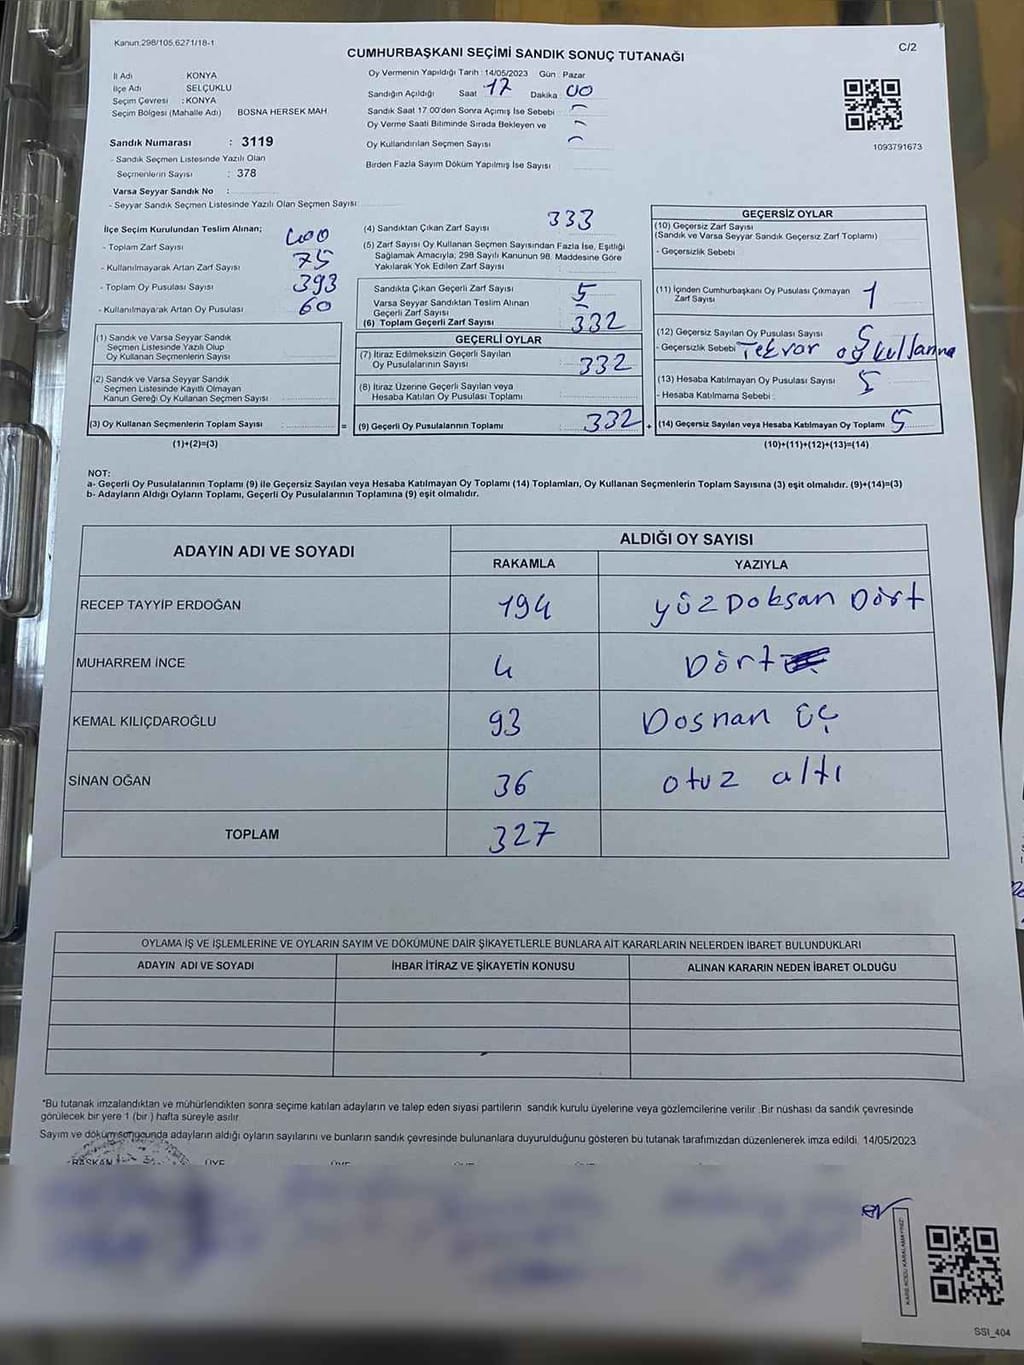 Kanun.298/105,6271/18-1
C/2
CUMHURBAŞKANI SEÇİMİ SANDIK SONUÇ TUTANAĞI
İl Adı KONYA
İlçe Adı SELÇUKLU
Seçim Çevresi : KONYA
Seçim Bölgesi (Mahalle Adı) BOSNA HERSEK MAH
Sandık Numarası : 3119
- Sandık Seçmen Listesinde Yazılı Olan
Seçmenlerin Sayısı : 378
Varsa Seyyar Sandık No :
- Seyyar Sandık Seçmen Listesinde Yazılı Olan Seçmen Sayısı
Oy Vermenin Yapıldığı Tarih : 14/05/2023 Gün : Pazar
Sandığın Açıldığı Saat 17 Dakika 00
Sandık Saat 17.00'den Sonra Açımış İse Sebebi
Oy Verme Saati Bitiminde Sırada Bekleyen ve
Oy Kullandırılan Seçmen Sayısı
Birden Fazla Sayım Döküm Yapılmış İse Sayısı
1093791673
İlçe Seçim Kurulundan Teslim Alınan;
- Toplam Zarf Sayısı 400
- Kullanılmayarak Artan Zarf Sayısı 75
- Toplam Oy Pusulası Sayısı 393
- Kullanılmayarak Artan Oy Pusulası 60
(1) Sandık ve Varsa Seyyar Sandık
Seçmen Listesinde Yazılı Olup
Oy Kullanan Seçmenlerin Sayısı
(2) Sandık ve Varsa Seyyar Sandık
Seçmen Listesinde Kayıtlı Olmayan
Kanun Gereği Oy Kullanan Seçmen Sayısı
(3) Oy Kullanan Seçmenlerin Toplam Sayısı =
(1)+(2)=(3)
(4) Sandıktan Çıkan Zarf Sayısı 333
(5) Zarf Sayısı Oy Kullanan Seçmen Sayısından Fazla İse, Eşitliği
Sağlamak Amacıyla, 298 Sayılı Kanunun 98. Maddesine Göre
Yakılarak Yok Edilen Zarf Sayısı
Sandıkta Çıkan Geçerli Zarf Sayısı 5
Varsa Seyyar Sandıktan Teslim Alınan
Geçerli Zarf Sayısı
(6) Toplam Geçerli Zarf Sayısı 332
GEÇERLİ OYLAR
(7) İtiraz Edilmeksizin Geçerli Sayılan
Oy Pusulalarının Sayısı 332
(8) İtiraz Üzerine Geçerli Sayılan veya
Hesaba Katılan Oy Pusulası Toplamı
(9) Geçerli Oy Pusulalarının Toplamı 332 +
GEÇERSİZ OYLAR
(10) Geçersiz Zarf Sayısı
(Sandık ve Varsa Seyyar Sandık Geçersiz Zarf Toplamı)
- Geçersizlik Sebebi
(11) İçinden Cumhurbaşkanı Oy Pusulası Çıkmayan
Zarf Sayısı 1
(12) Geçersiz Sayılan Oy Pusulası Sayısı 5
- Geçersizlik Sebebi Tekrar oy kullanma
(13) Hesaba Katılmayan Oy Pusulası Sayısı 5
- Hesaba Katılmama Sebebi :
(14) Geçersiz Sayılan veya Hesaba Katılmayan Oy Toplamı 5
(10)+(11)+(12)+(13)=(14)
NOT:
a- Geçerli Oy Pusulalarının Toplamı (9) ile Geçersiz Sayılan veya Hesaba Katılmayan Oy Toplamı (14) Toplamları, Oy Kullanan Seçmenlerin Toplam Sayısına (3) eşit olmalıdır. (9)+(14)=(3)
b- Adayların Aldığı Oyların Toplamı, Geçerli Oy Pusulalarının Toplamına (9) eşit olmalıdır.
ADAYIN ADI VE SOYADI
ALDIĞI OY SAYISI
RAKAMLA YAZIYLA
RECEP TAYYİP ERDOĞAN 194 yüz Doksan Dört
MUHARREM İNCE 4 Dört
KEMAL KILIÇDAROĞLU 93 Dosnan üç
SİNAN OĞAN 36 otuz altı
TOPLAM 327
OYLAMA İŞ VE İŞLEMLERİNE VE OYLARIN SAYIM VE DÖKÜMÜNE DAİR ŞİKAYETLERLE BUNLARA AİT KARARLARIN NELERDEN İBARET BULUNDUKLARI
ADAYIN ADI VE SOYADI İHBAR İTİRAZ VE ŞİKAYETİN KONUSU ALINAN KARARIN NEDEN İBARET OLDUĞU
*Bu tutanak imzalandıktan ve mühürlendikten sonra seçime katılan adayların ve talep eden siyasi partilerin sandık kurulu üyelerine veya gözlemcilerine verilir .Bir nüshası da sandık çevresinde
görülecek bir yere 1 (bir ) hafta süreyle asılır.
Sayım ve döküm sonucunda adayların aldığı oyların sayılarını ve bunların sandık çevresinde bulunanlara duyurulduğunu gösteren bu tutanak tarafımızdan düzenlenerek imza edildi. 14/05/2023
BAŞKAN ÜYE
KARE KODU KARALAMAYINIZ!
SSI_404